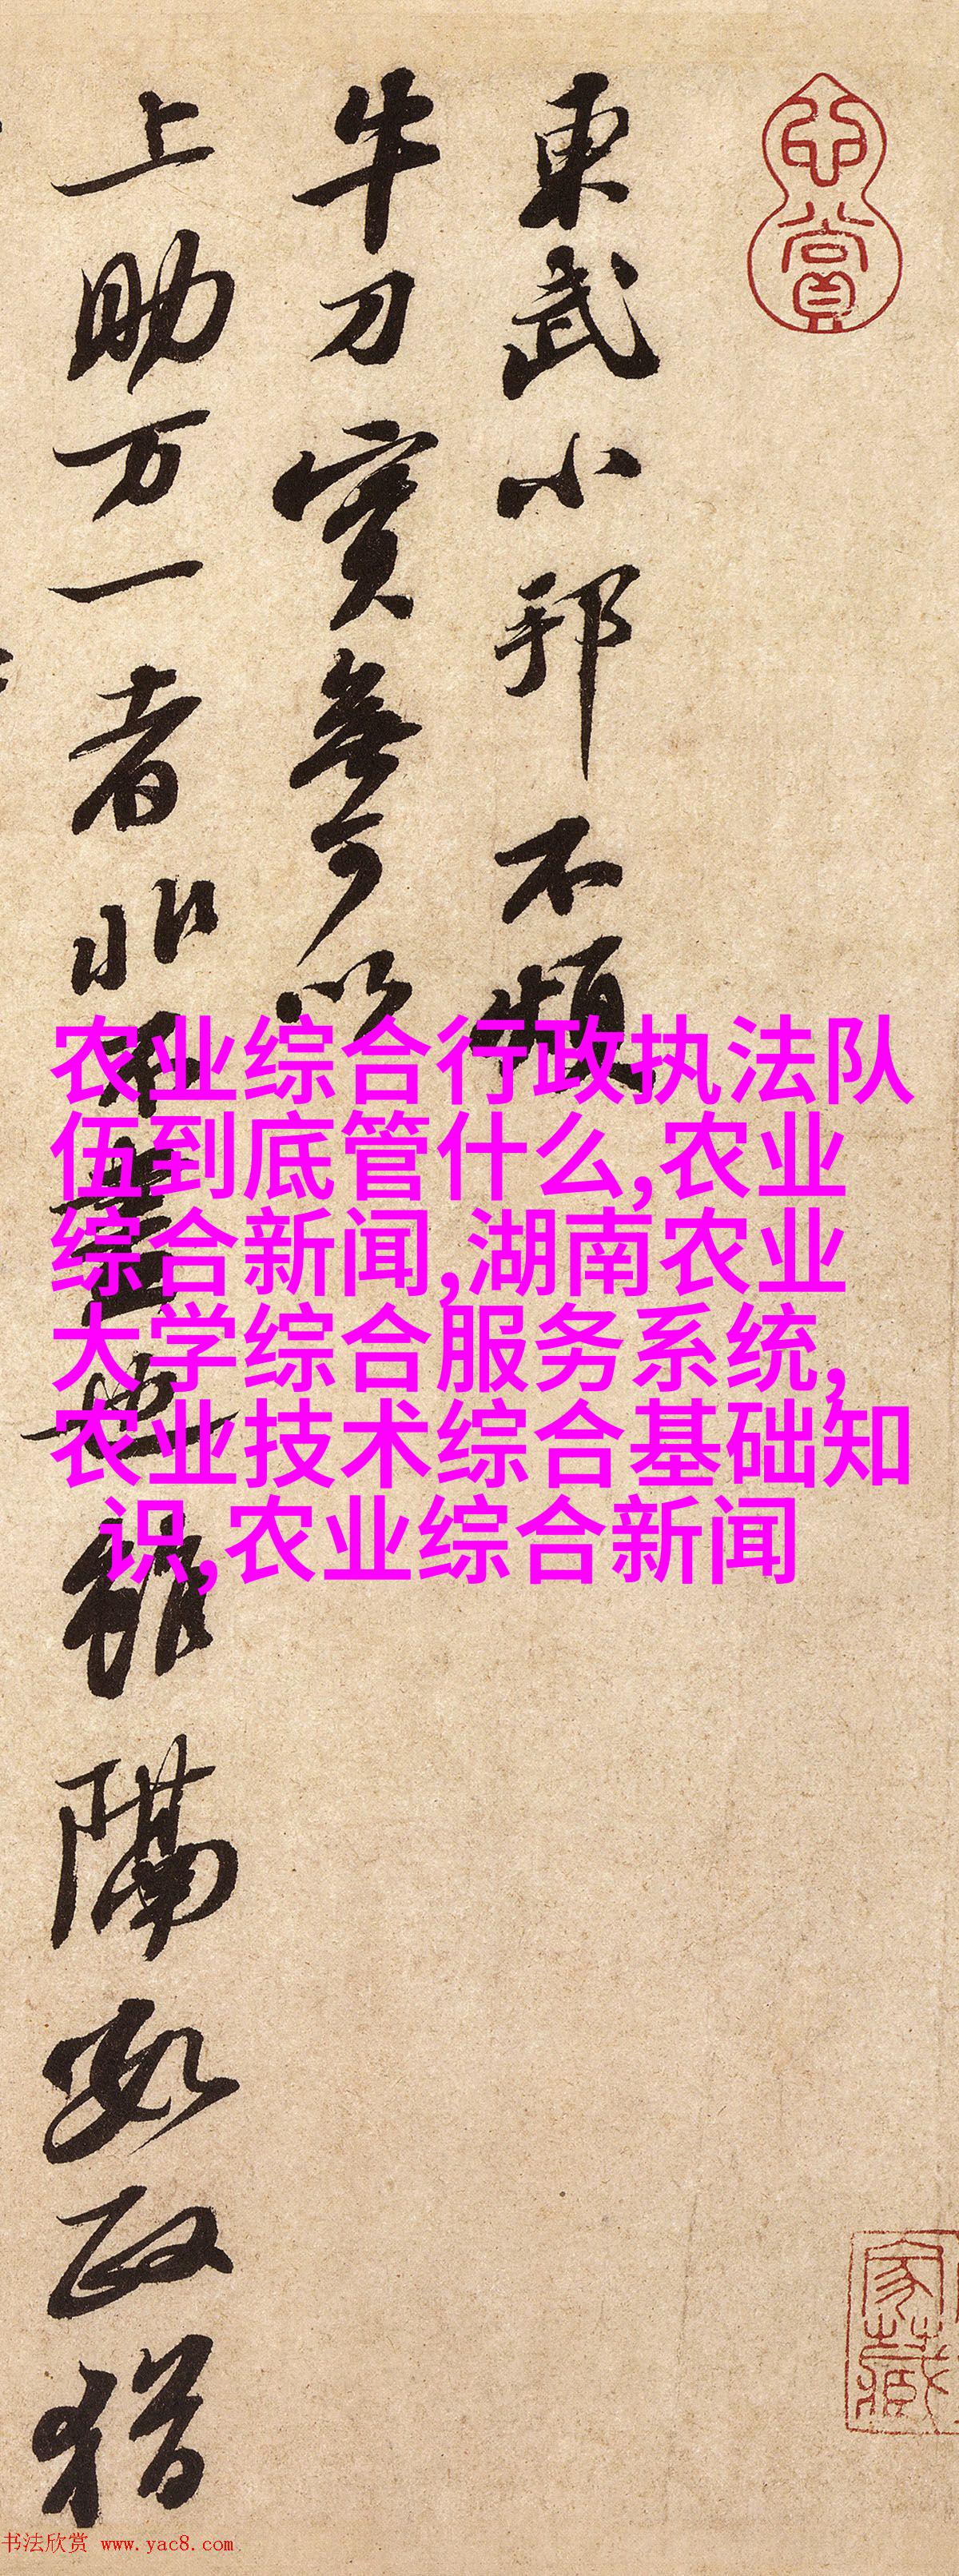 心賞
東武小邦不煩
牛刀實無可以
上助万一者非不盡也雖隔數政猶
农业综合行政执法队
伍到底管什么,农业
综合新闻,湖南农业
大学综合服务系统,
农业技术综合基础知
识,农业综合新闻
家藏
书法欣赏 www.yac8.com